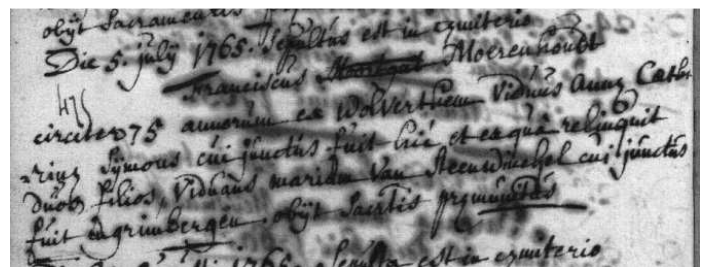 obijt Sacramentis
Die 5. julij 1765. Sepultus est in cæmiterio
Franciscus Moerenhoudt
475
circiter 75 annorum ex Wolverthem viduus Annæ Cath:
rinæ Symons cui junctus fuit hic et ex qua relinquit
duos filios, viduans mariam Van Steenwinckel cui junctus
fuit in grimbergen, obijt Sacrtis præmunitus
1765. Sepulta est in cæmiterio